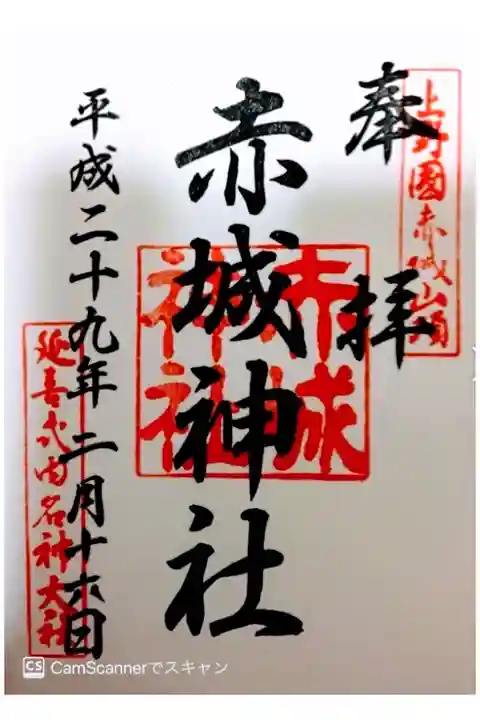 奉拝
上野國赤城山頂
赤城神社
赤城
神社
平成二十九年二月十六日
延喜式内名神大社
CS CamScannerでスキャン